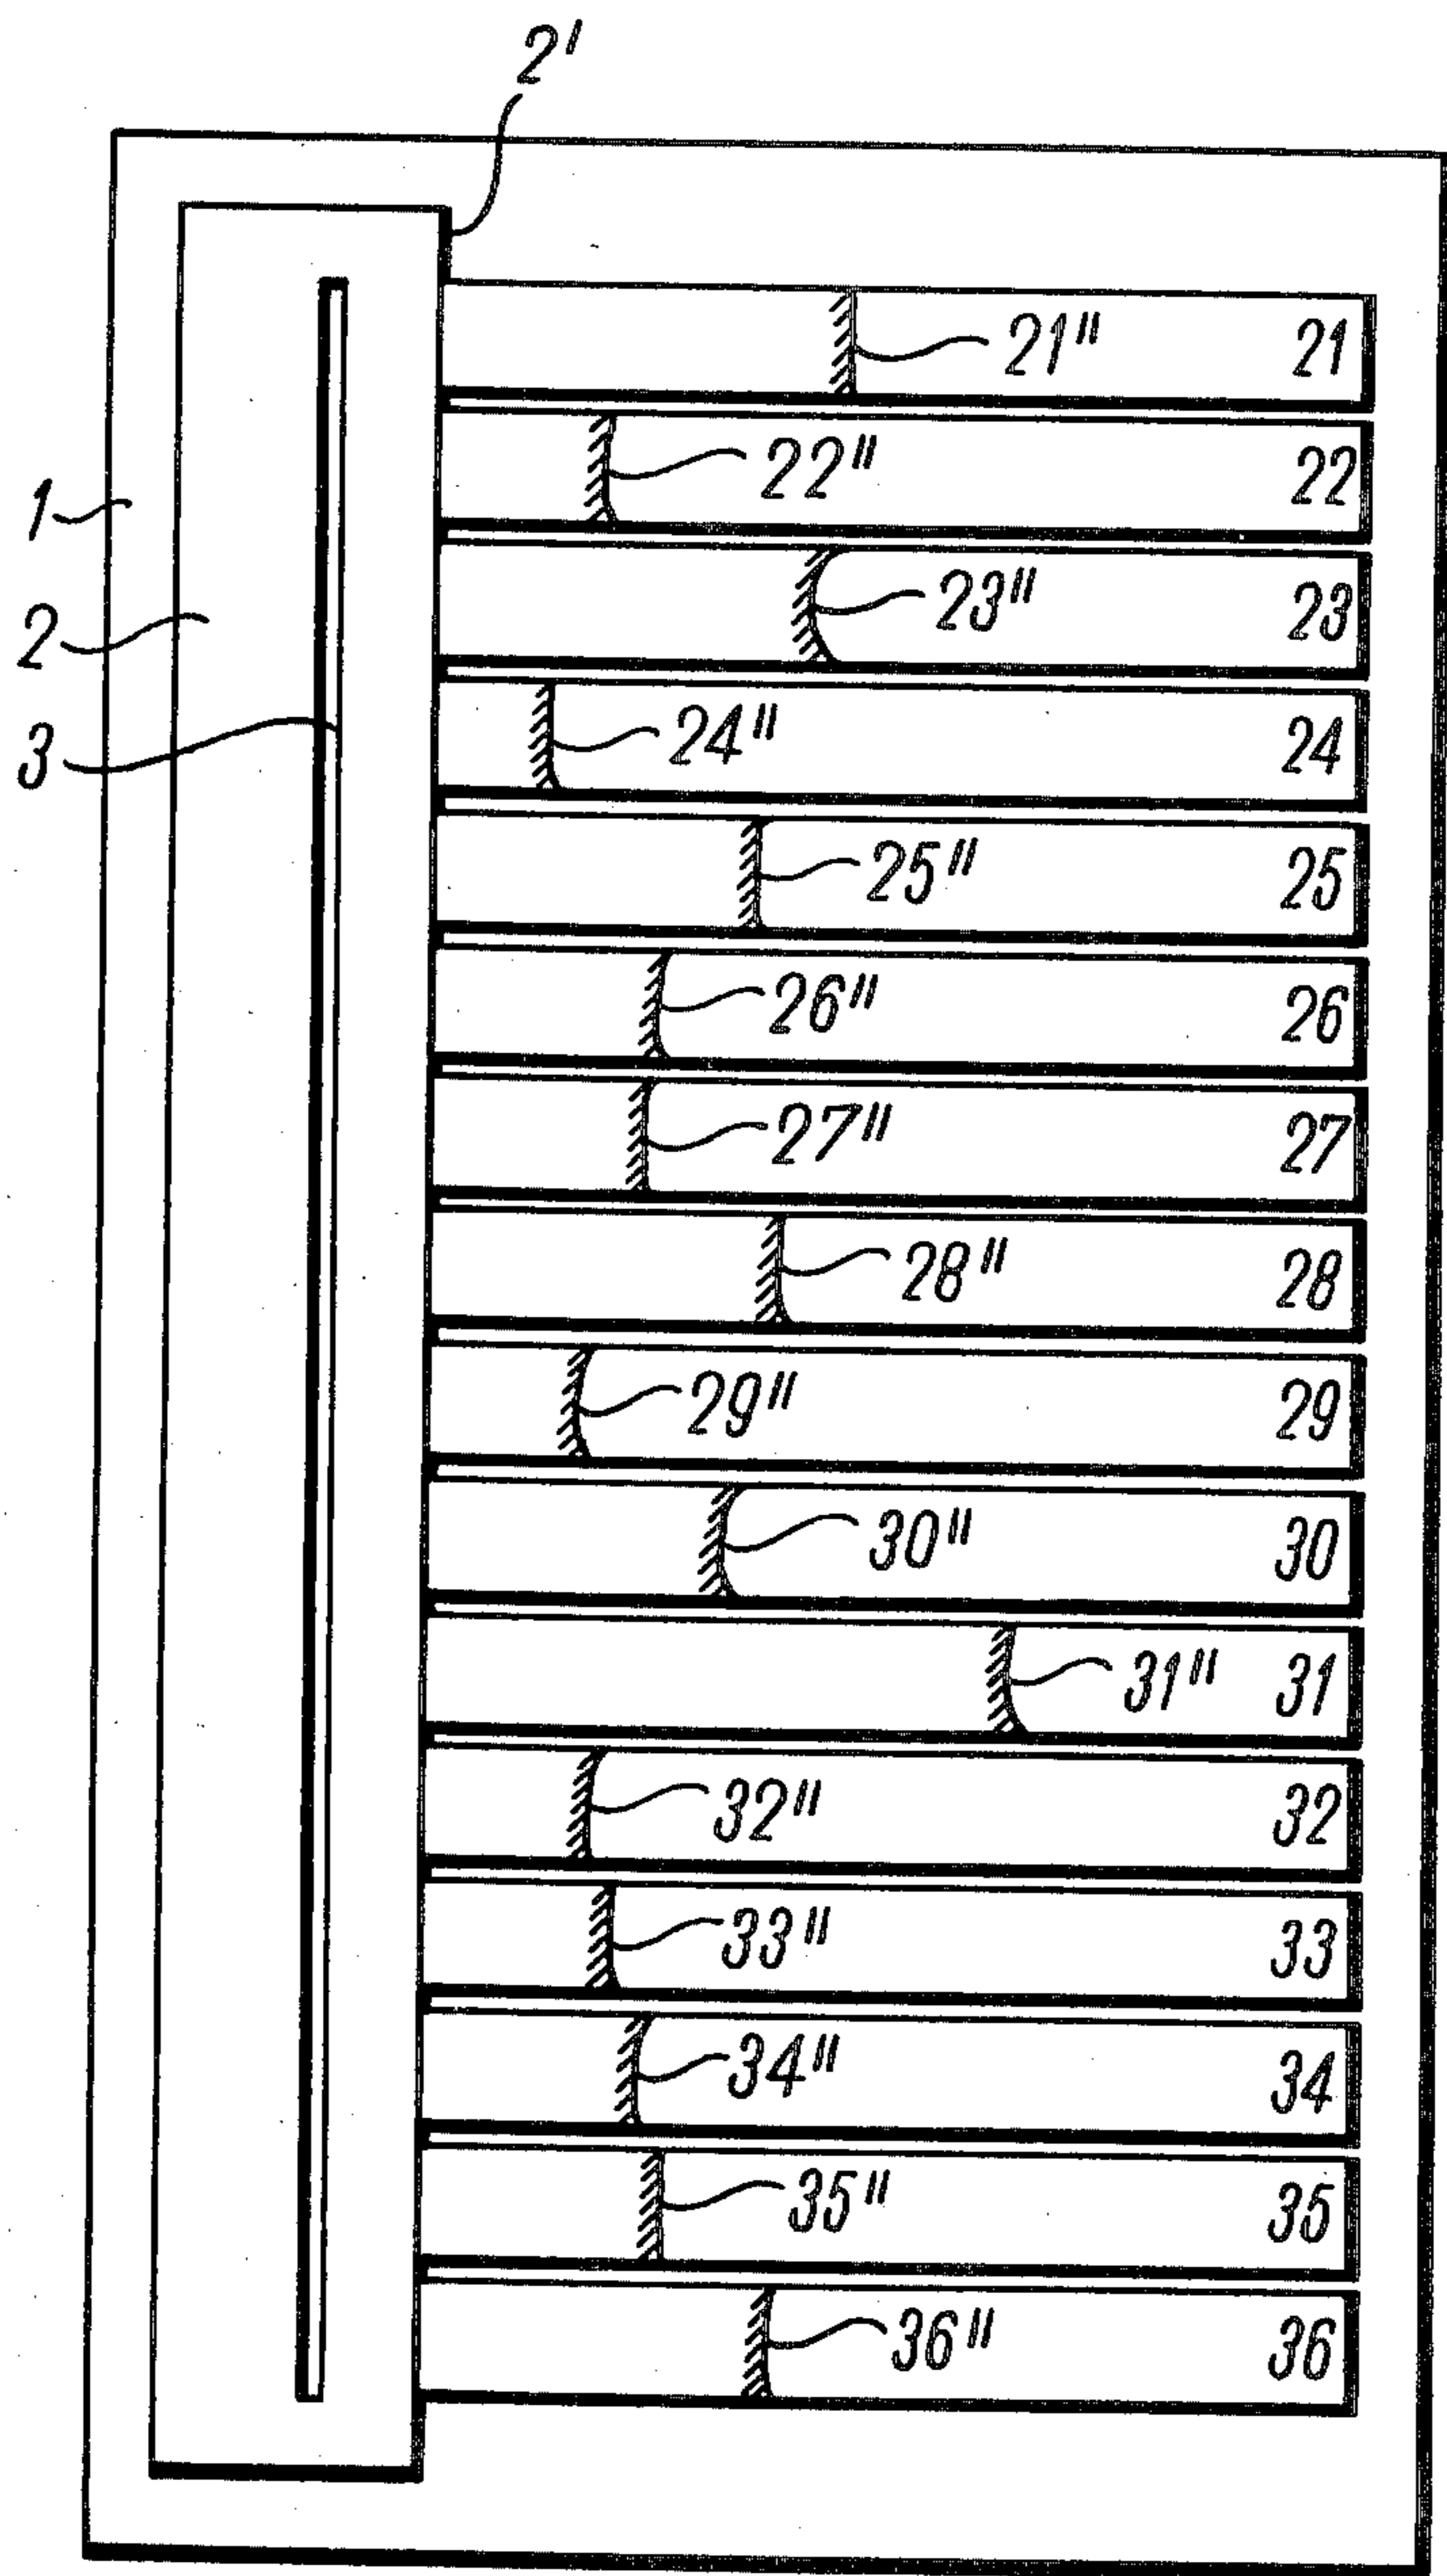 2'
21" 21
22" 22
1
23" 23
2
24" 24
3
25" 25
26" 26
27" 27
28" 28
29" 29
30" 30
31" 31
32" 32
33" 33
34" 34
35" 35
36" 36